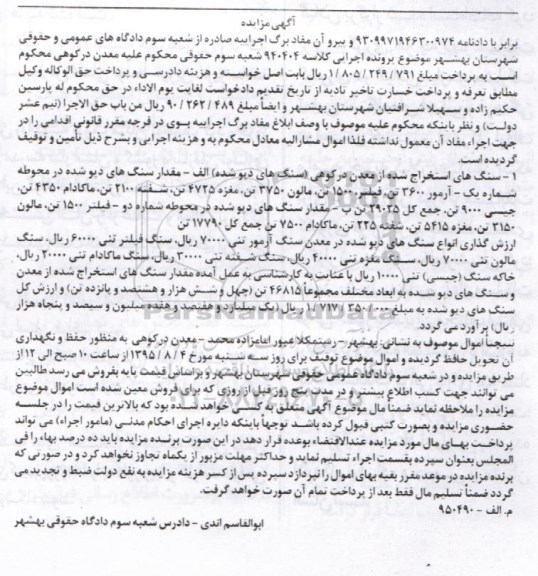 آگهی مزایده
برابر با دادنامه ۹۳۰۹۹۷۱۹۴۶۳۰۰۹۷۴ و پیرو آن مفاد برگ اجراییه صادره از شعبه سوم دادگاه های عمومی و حقوقی
شهرستان بهشهر موضوع پرونده اجرایی کلاسه ۹۴۰۴۰۴ شعبه سوم حقوقی محکوم علیه معدن درکوهی محکوم
است به پرداخت مبلغ ۷۹۱ / ۲۴۹ / ۸۰۵ / ۱ ریال بابت اصل خواسته و هزینه دادرسی و پرداخت حق الوکاله وکیل
مطابق تعرفه و پرداخت خسارت تاخیر تادیه از تاریخ تقدیم دادخواست لغایت یوم الاداء در حق محکوم له پارسین
حکیم زاده و سهیلا شرافتیان شهرستان بهشهر و ایضاً مبلغ ۴۸۹ / ۲۶۲ / ۹۰ ریال من باب حق الاجرا (نیم عشر
دولت) و نظر باینکه محکوم علیه موصوف با وصف ابلاغ مفاد برگ اجراییه بوی در فرجه مقرر قانونی اقدامی را در
جهت اجراء مفاد آن معمول نداشته فلذا اموال مشارالیه معادل محکوم به و هزینه اجرایی و بشرح ذیل تأمین و توقیف
گردیده است.
۱ - سنگ های استخراج شده از معدن درکوهی (سنگ های دپو شده) الف - مقدار سنگ های دپو شده در محوطه
شماره یک - آرمور ۳۶۰۰ تن، فیلتر ۱۵۰۰ تن، مالون ۳۷۵۰ تن، مغزه ۴۷۲۵ تن، شفته ۲۱۰۰ تن، ماکادام ۴۳۵۰ تن،
جیسی ۹۰۰۰ تن. جمع کل ۲۹۰۲۵ تن ب - مقدار سنگ های دپو شده در محوطه شماره دو - فیلتر ۱۵۰۰ تن، مالون
۳۱۵۰ تن، مغزه ۵۴۱۵ تن، شفته ۲۲۵ تن، ماکادام ۷۵۰۰ تن جمع کل ۱۷۷۹۰ تن
ارزش گذاری انواع سنگ های دپو شده در معدن سنگ آرمور تنی ۷۰۰۰۰ ریال، سنگ فیلتر تنی ۶۰۰۰۰ ریال، سنگ
مالون تنی ۷۰۰۰۰ ریال، سنگ مغزه تنی ۴۰۰۰۰ ریال، سنگ شفته تنی ۳۰۰۰۰ ریال، سنگ ماکادام تنی ۲۰۰۰۰ ریال،
خاکه سنگ (جیسی) تنی ۱۰۰۰۰ ریال با عنایت به کارشناسی به عمل آمده مقدار سنگ های استخراج شده از معدن
و سنگ های دپو شده به ابعاد مختلف مجموعاً ۴۶۸۱۵ تن (چهل و شش هزار و هشتصد و پانزده تن) و ارزش کل
سنگ های دپو شده به مبلغ ریال (یک میلیارد و هفتصد و هفده میلیون و سیصد و پنجاه هزار
ریال) برآورد می گردد.
نتیجتاً اموال موصوف به نشانی: بهشهر - رستمکلا عبور امامزاده محمد - معدن درکوهی به منظور حفظ و نگهداری
آن تحویل حافظ گردیده و اموال موضوع توقیف برای روز سه شنبه مورخ ۴ / ۸ / ۱۳۹۵ از ساعت ۱۰ صبح الی ۱۲ از
طریق مزایده و در شعبه سوم دادگاه عمومی حقوقی شهرستان بهشهر و براساس قیمت پایه بفروش می رسد طالبین
می توانند جهت کسب اطلاع بیشتر و در مدت پنج روز قبل از روزی که برای فروش معین شده است اموال موضوع
مزایده را ملاحظه نماید ضمناً مال موضوع آگهی متعلق به کسی خواهد شد بود که بالاترین قیمت را در جلسه
حضوری مزایده و بصورت کتبی قبول کرده باشد. توجهاً باینکه دایره اجرای احکام مدنی (مامور اجراء) می تواند
پرداخت بهای مال مورد مزایده عندالاقتضاء بوعده قرار دهد در این صورت برنده مزایده باید ده درصد بهاء را فی
المجلس بعنوان سپرده بقسمت اجراء تسلیم نماید و حداکثر مهلت مزبور از یکماه تجاوز نخواهد کرد و در صورتی که
برنده مزایده در موعد مقرر بقیه بهای اموال را نپردازد سپرده پس از کسر هزینه مزایده به نفع دولت ضبط و تجدید می
گردد ضمناً تسلیم مال فقط بعد از پرداخت تمام آن صورت خواهد گرفت.
م. الف - ۹۵۰۴۹۰
ابوالقاسم اندی - دادرس شعبه سوم دادگاه حقوقی بهشهر
ParsNamadData